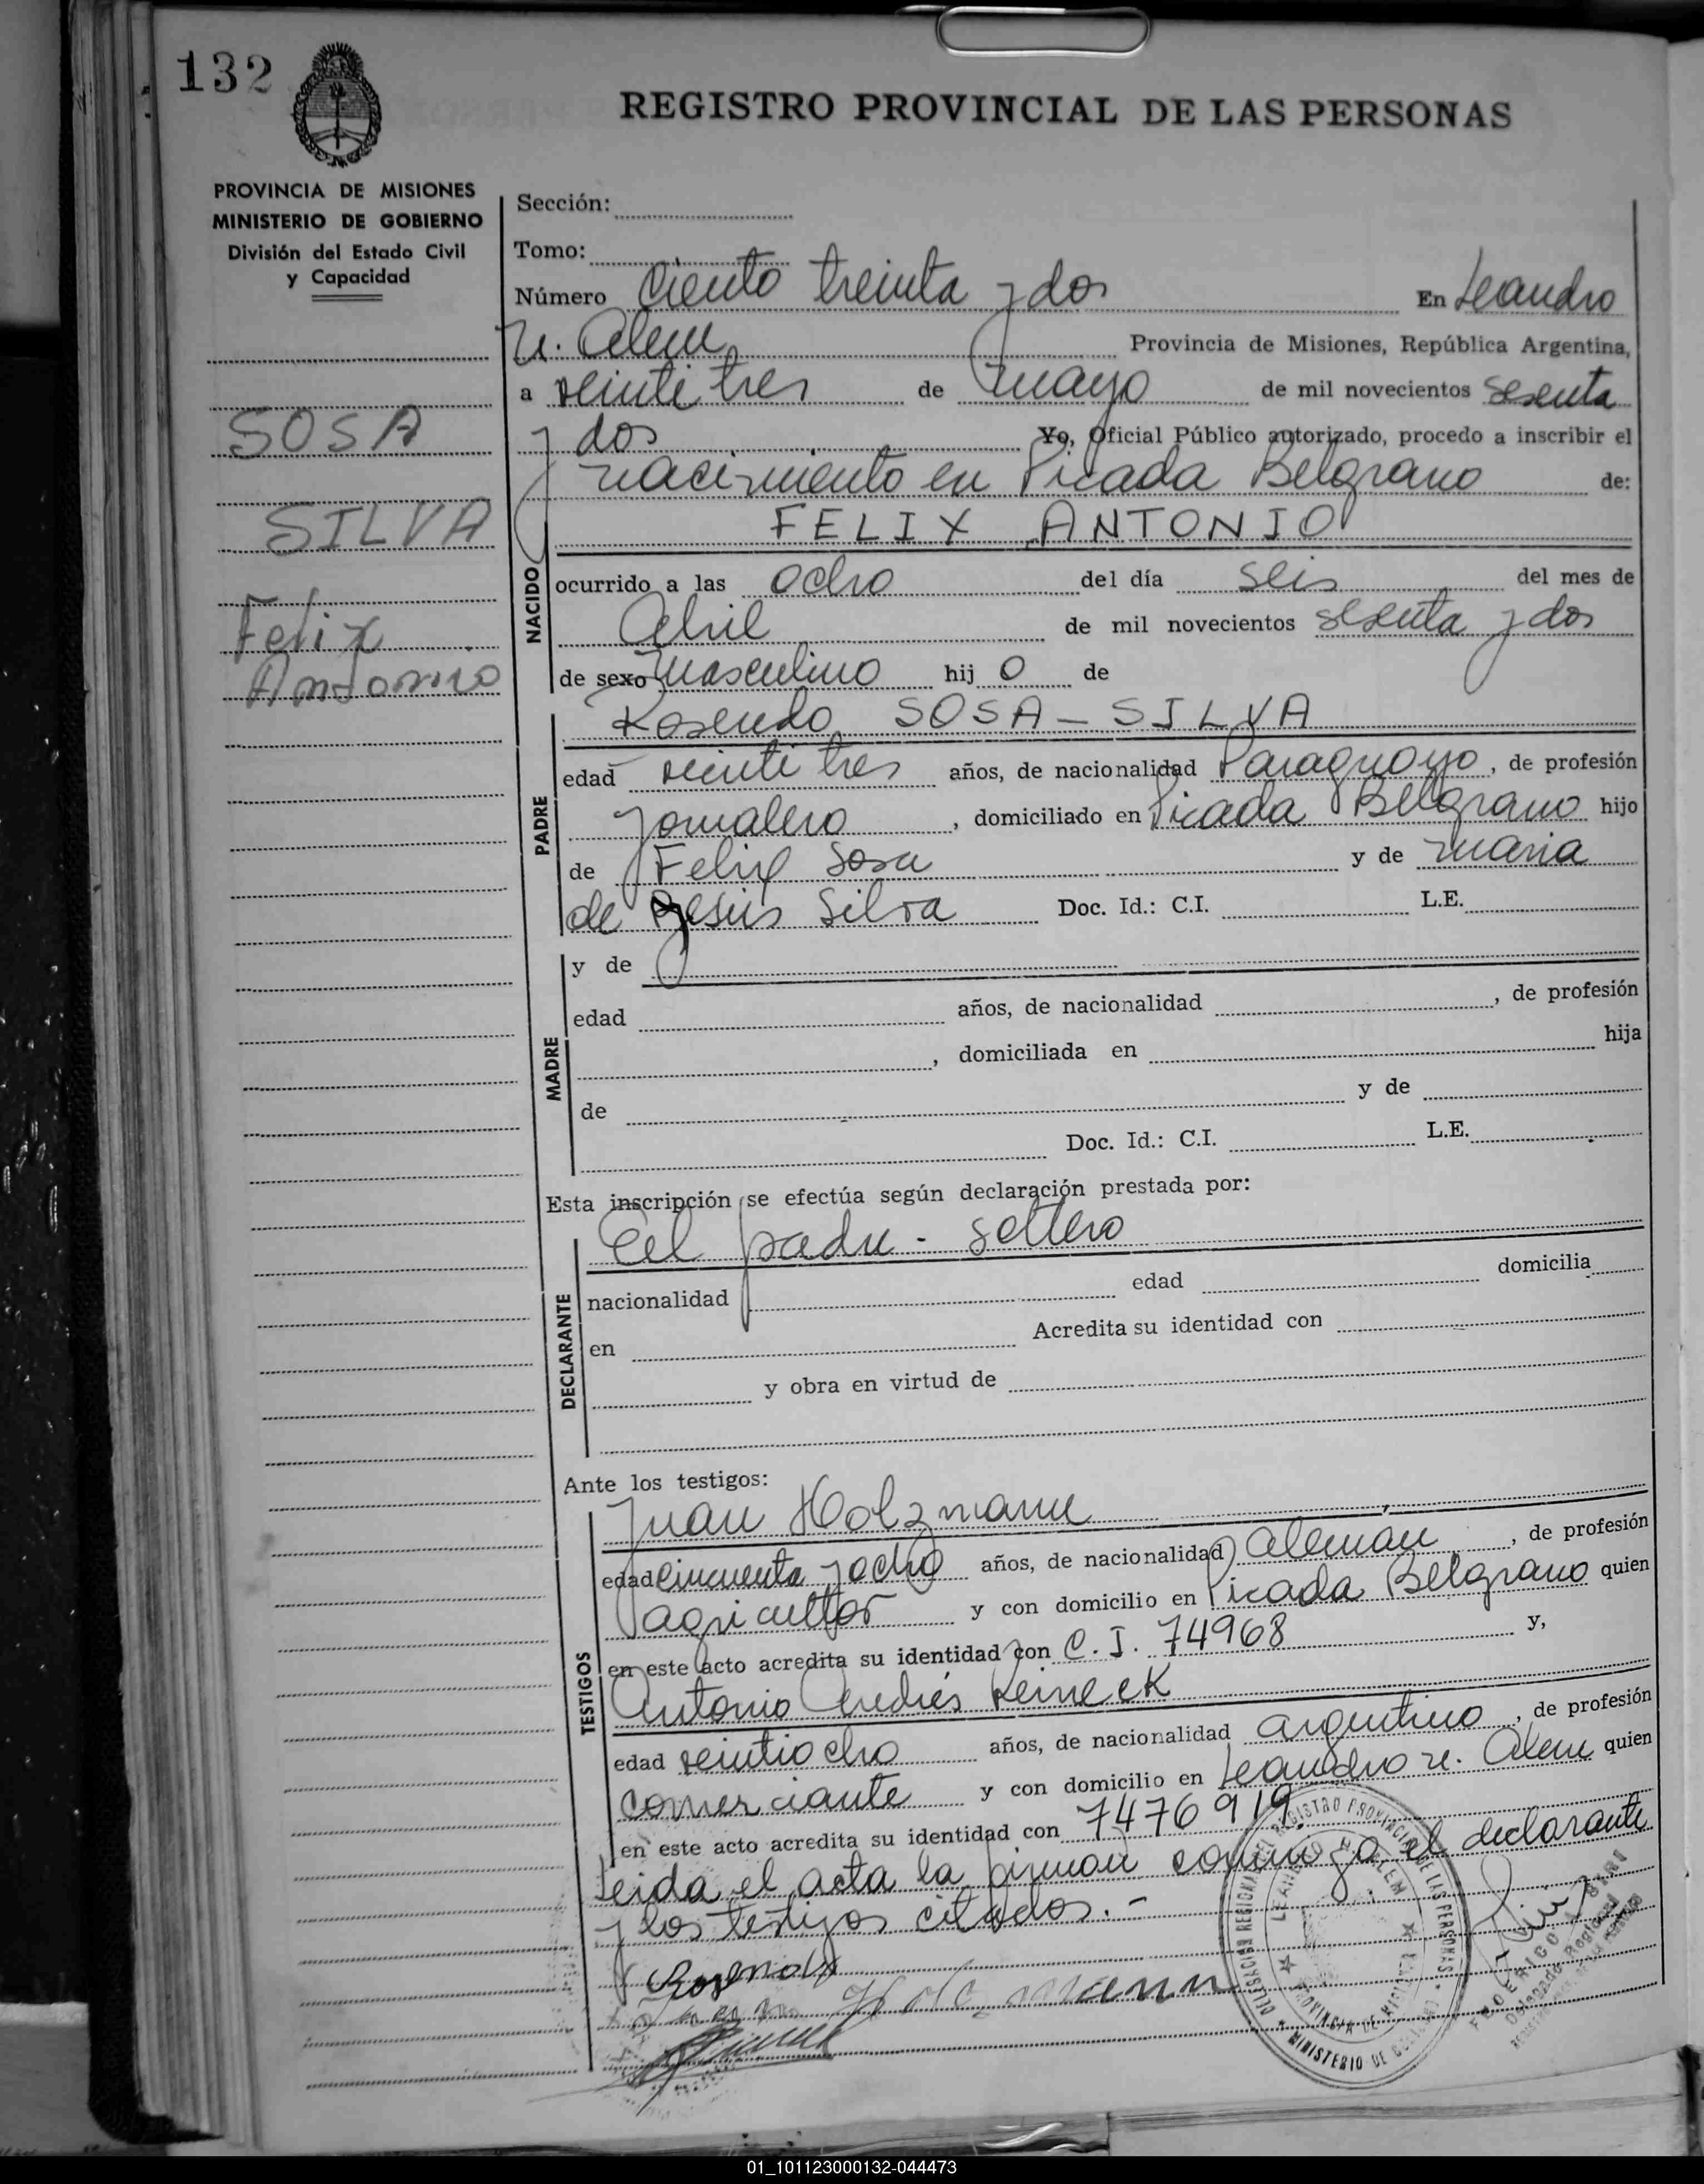 132
REGISTRO PROVINCIAL DE LAS PERSONAS
PROVINCIA DE MISIONES
MINISTERIO DE GOBIERNO
División del Estado Civil
y Capacidad
SOSA
SILVA
Felix
Antonio
Sección:
Tomo:
Número Ciento treinta y dos En Leandro
N. Alem Provincia de Misiones, República Argentina,
a veintitres de mayo de mil novecientos sesenta
y dos Yo, Oficial Público autorizado, procedo a inscribir el
nacimiento en Picada Belgrano de:
FELIX ANTONIO
NACIDO
ocurrido a las ocho del día seis del mes de
Abril de mil novecientos sesenta y dos
de sexo masculino hij o de
Rosendo SOSA - SILVA
PADRE
edad veinti tres años, de nacionalidad Paraguayo, de profesión
Jornalero, domiciliado en Picada Belgrano hijo
de Felix Sosa y de Maria
de Jesús Silva Doc. Id.: C.I. L.E.
MADRE
y de
edad años, de nacionalidad , de profesión
, domiciliada en hija
de y de
Doc. Id.: C.I. L.E.
Esta inscripción se efectúa según declaración prestada por:
El padre - soltero
DECLARANTE
nacionalidad edad domicilia
en Acredita su identidad con
y obra en virtud de
Ante los testigos:
TESTIGOS
Juan Holzmann
edad cincuenta y ocho años, de nacionalidad Aleman, de profesión
agricultor y con domicilio en Picada Belgrano quien
en este acto acredita su identidad con C. I. 74968 y,
Antonio Andrés Reineck
edad veintiocho años, de nacionalidad argentino, de profesión
comerciante y con domicilio en Leandro N. Alem quien
en este acto acredita su identidad con 7476919.
Leida el acta la firman conmigo el declarante
y los testigos citados. -
Rosendo
Holzmann
DELEGACION REGIONAL DEL REGISTRO PROVINCIAL DE LAS PERSONAS
LEANDRO N. ALEM
PROVINCIA DE MISIONES
MINISTERIO DE GOBIERNO
FEDERICO
Delegado Regional
01_101123000132-044473